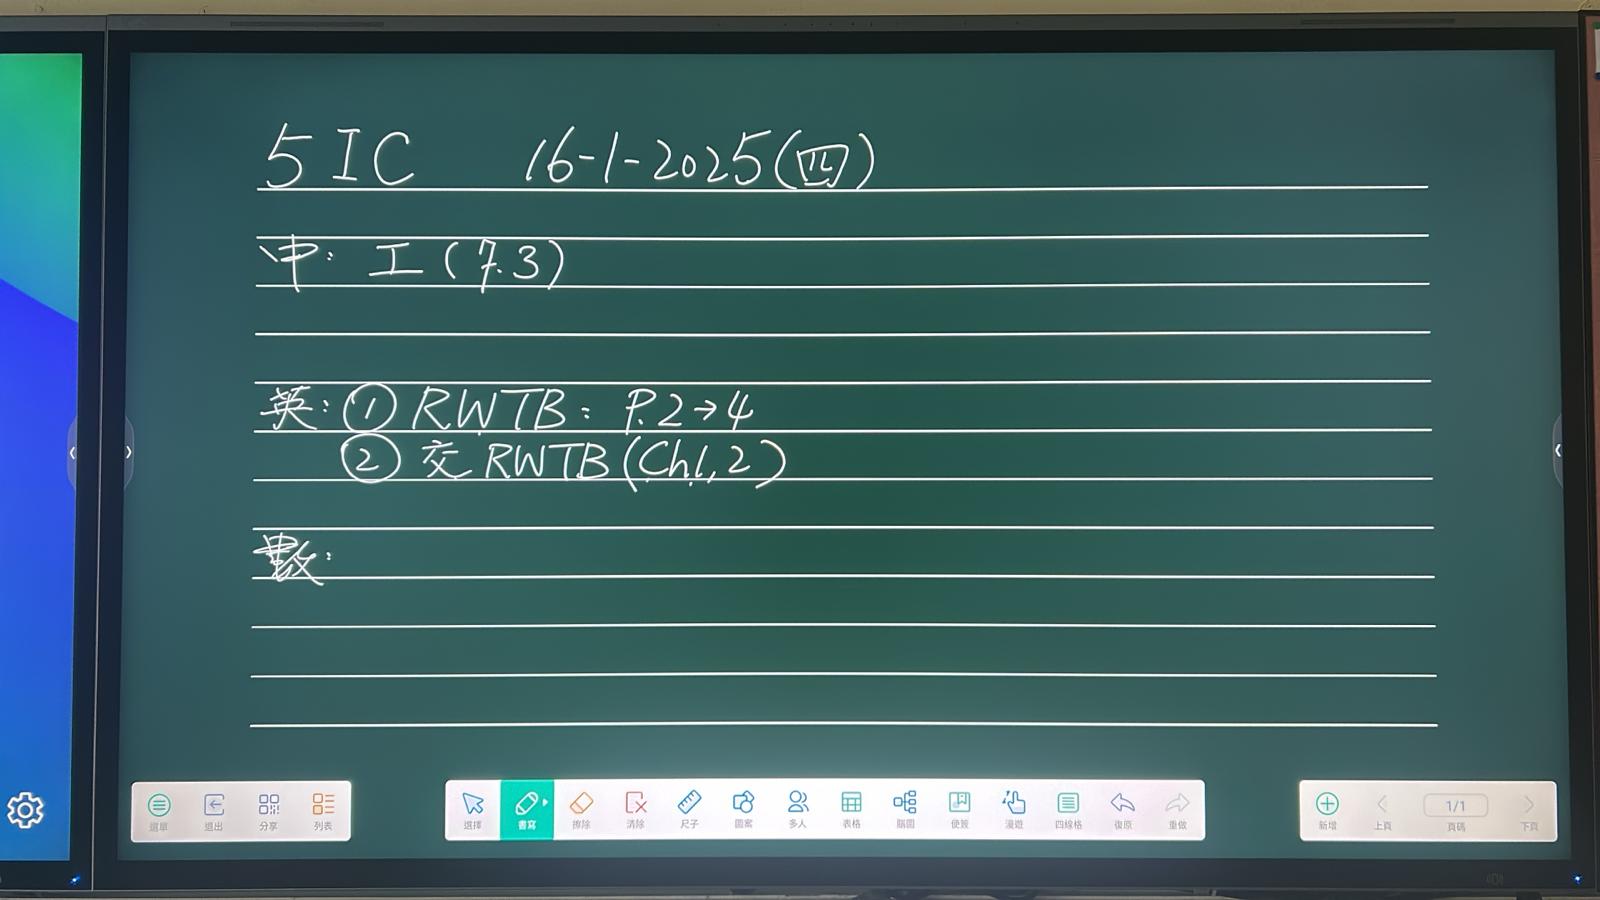 5IC 16-1-2025(四)
中: 工(7.3)
英: ① RWTB: P.2→4
② 交 RWTB(Ch1,2)
數:
選單 退出 分享 列表
選擇 書寫 擦除 清除 尺子 圖案 多人 表格 腦圖 便簽 漫遊 四線格 復原 重做
新增 上頁 1/1 頁碼 下頁